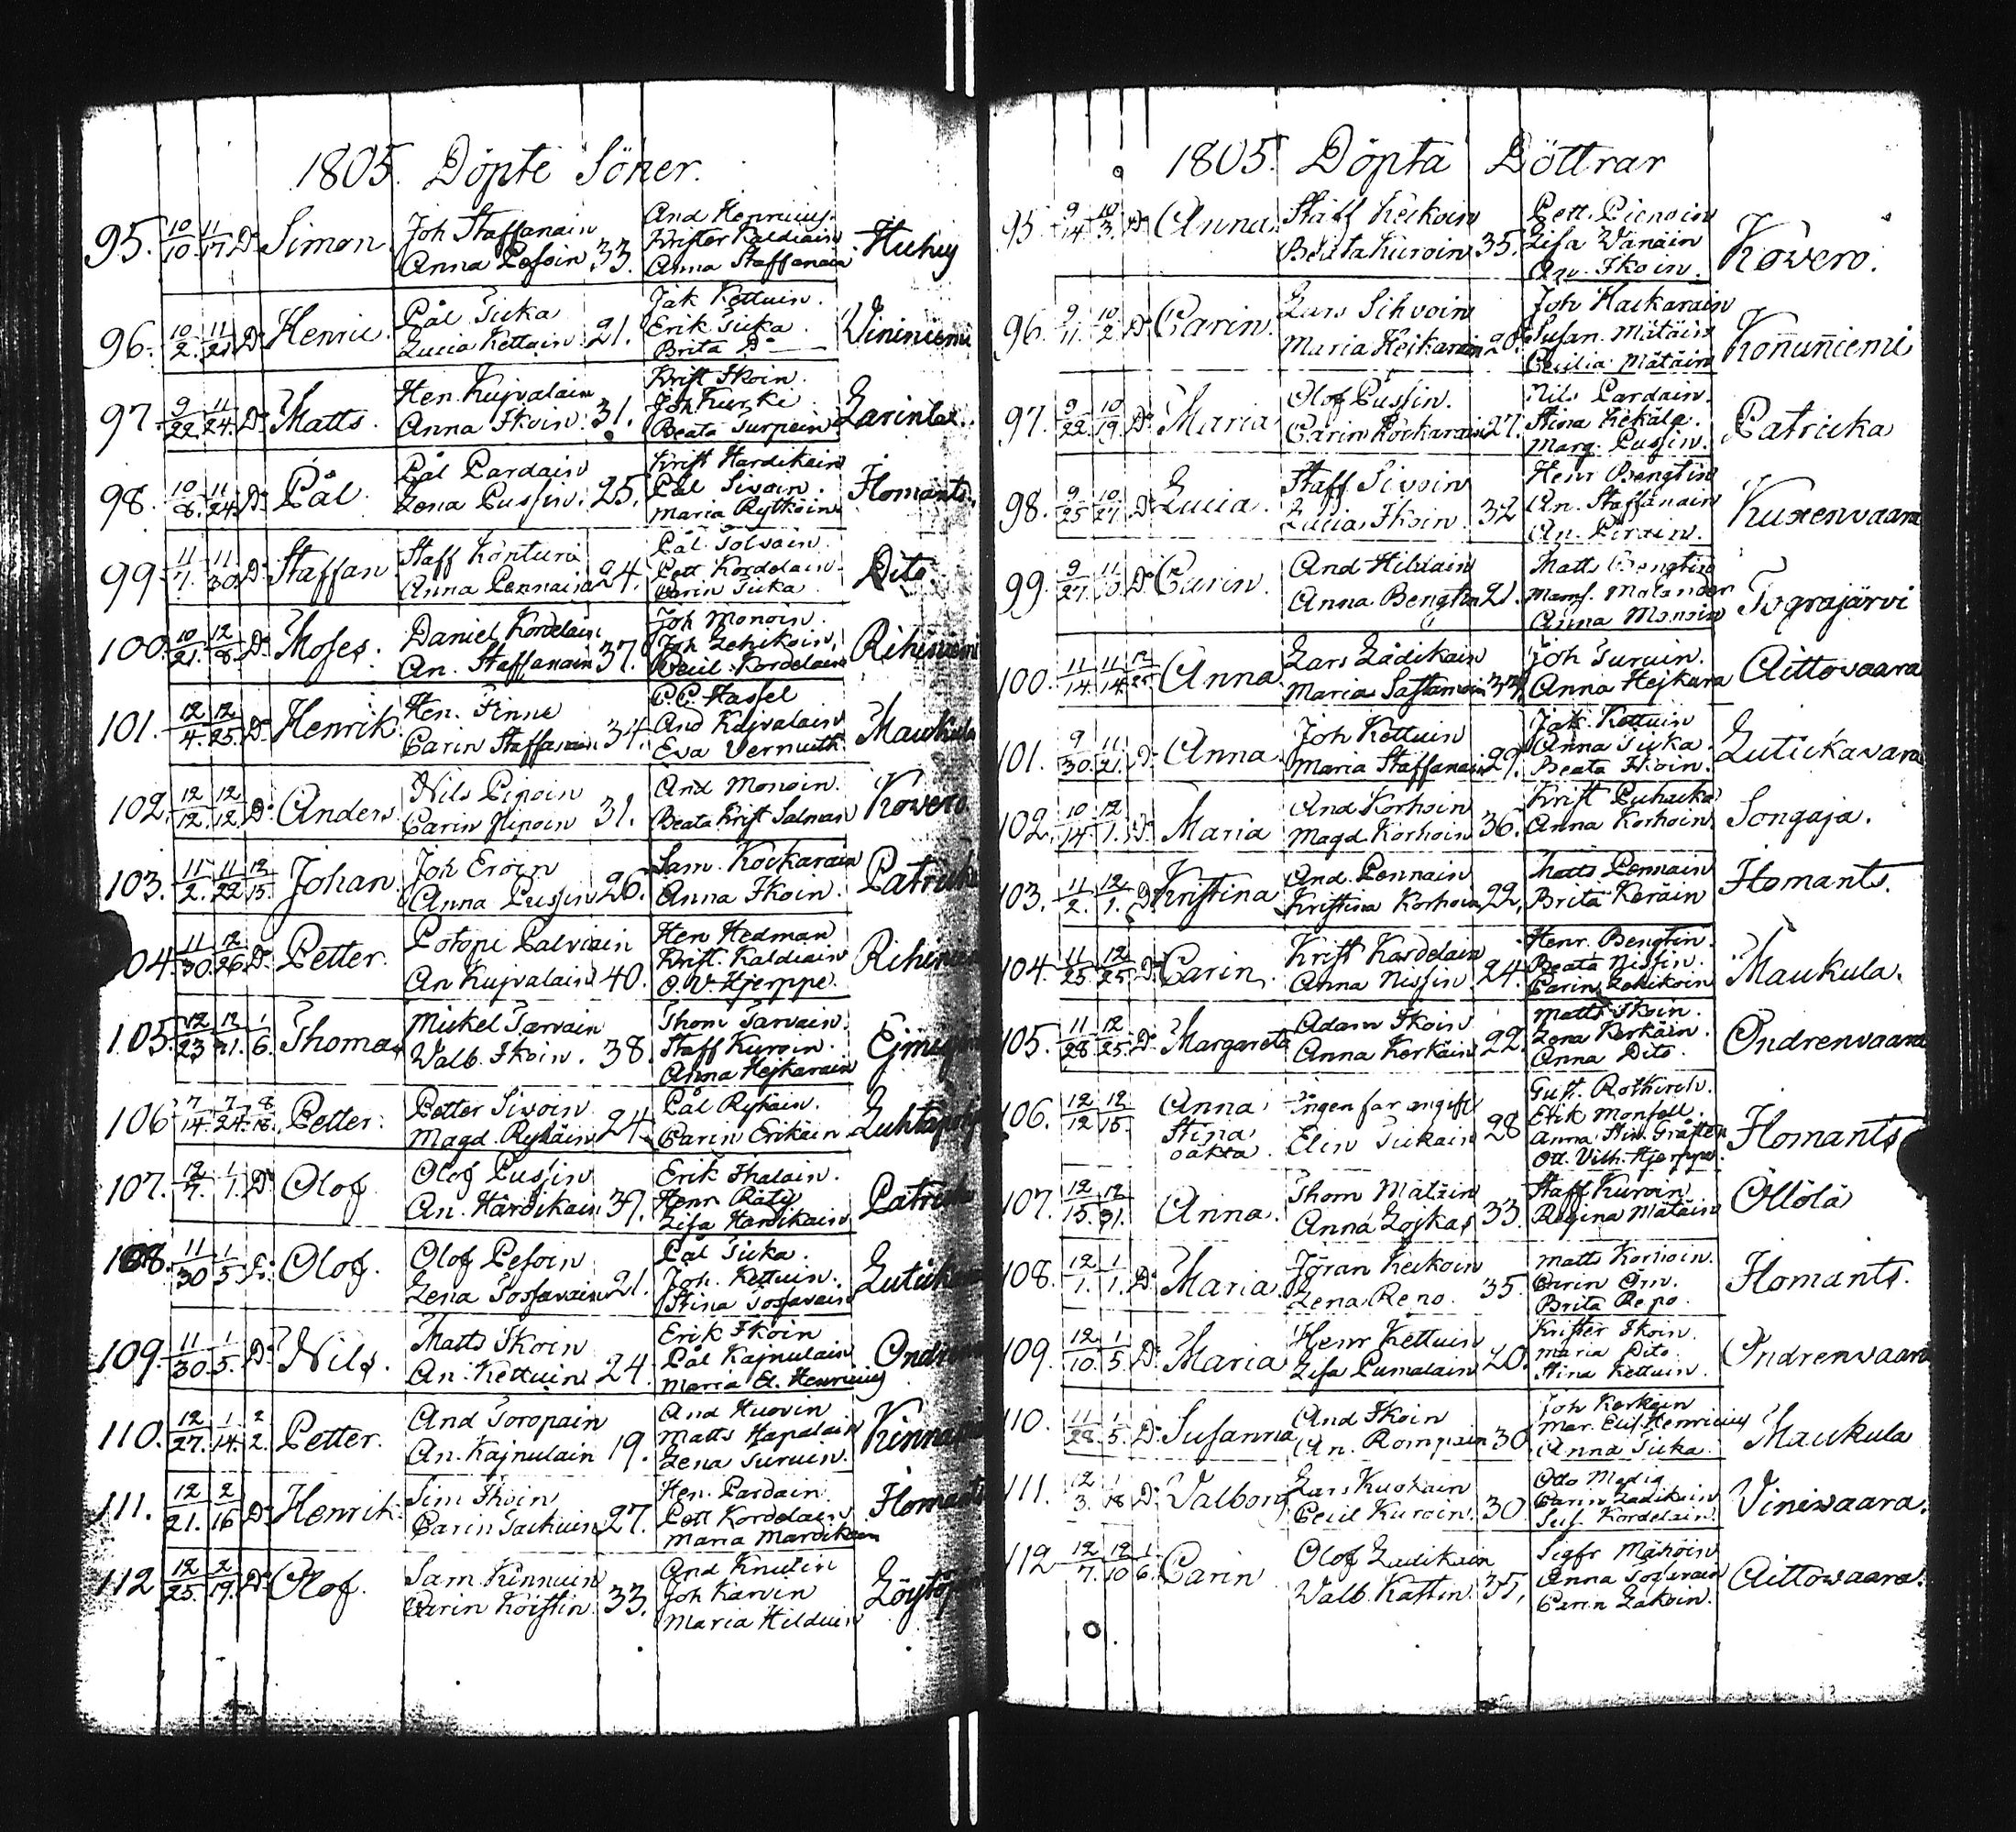 1805. Döpte Söner.
95. 10/10. 11/17. Do Simon Joh Staffanain Anna Pesoin 33. And Henricius. Krister Kaldiain Anna Staffanain Huhuj
96. 10/2. 11/21. Do Henric Pål Sicka Lucia Kettuin 21. Jak Kettuin. Erik Sicka. Brita Do Vininiemi
97 9/22. 11/24. Do Matts. Hen. Kujvalain Anna Ikoin. 31. Krist Ikoin. Joh Kurki Beata Turpein
98. 10/8. 11/24. Do Pål Pål Pardain Lena Pussin. 25. Krist Hardikain Pål Sivoin. Maria Rytköin Ilomants.
99. 11/7. 11/30. Do Staffan Staff Könturi Anna Pennain 24. Pål Tolvain. Pett Kordelain Carin Sicka Dito.
100. 10/21. 12/8. Do Moses. Daniel Kordelain An. Staffanain 37. Joh Monoin. Joh Lehikoin. Cecil. Kordelain Rihiniemi
101. 12/4. 12/25. Do Henrik Hen. Finne Carin Staffanain. 34. C. C. Hassel And Kujvalain Eva Vernuith. Maukula
102. 12/12. 12/12. Do Anders Nils Pipoin Carin Pipoin 31. And Monoin. Beata Krist Salman Kowero
103. 11/2. 11/22. 12/15. Johan Joh Eroin Anna Pussin 26. Sam. Kockarain Anna Ikoin. Patricka
104. 11/30. 12/26. Do Petter. Potopi Palviain An Kujvalain 40. Hen Hedman Krist. Kaldiain O. W. Hjerppe. Rihiniemi
105. 12/23 12/31. 1/6. Thomas Mickel Tarvain Walb. Ikoin. 38. Thom Tarvain. Staff Kuroin. Anna Hejkarain
106 7/14. 7/24. 8/18. Petter. Petter Sivoin Magd. Rykäin 24. Pål Rykäin. Carin Erikäin
107. 12/7. 1/1. Do Olof Olof Pussin An. Hardikain 37. Erik Ihalain. Henr Räty Lisa Hardikain Patricka
108. 11/30 1/5 Do Olof. Olof Pesoin Lena Tossavain 21. Pål Sicka. Joh. Kettuin. Stina Tossavain
109. 11/30 1/5. Do Nils. Matts Ikoin An. Kettuin 24. Erik Ikoin Pål Kajnulain Maria El. Henricius
110. 12/27. 1/14. 2/2. Petter. And Toropain An. Kajnulain 19. And Huovin Matts Hapalain Lena Turuin.
111. 12/21. 2/16 Do Henrik Sim Ikoin Carin Tackuin 27. Hen. Pardain. Pett Kordelain Maria Mardikain Ilomants
112 12/25. 2/19. Do Olof. Sam Kinnuin Carin Köistin. 33. And Knutin Joh Karvin Maria Hilduin
1805. Döpta Döttrar
95. 9/14 10/3. Do Anna Staff Keckoin Beata Kuroin 35. Pett. Pienoin Lisa Wänäin An. Ikoin. Kowero.
96. 9/11. 10/2. Do Carin. Lars Sihvoin Maria Heikarain 20. Joh Hackarain Susan. Mätäin Cecilia Mätäin Koñuñiemi
97. 9/22. 10/19. Do Maria Olof Pussin. Carin Kockarain 27. Nils Pardain. Stina Kekäla. Marg. Pussin. Patricka
98. 9/25 10/27. Do Lucia. Staff Sivoin Lucia Ikoin. 32 Henr Bengtin An. Staffanain An. Piroin. Kuxenvaara
99. 9/27. Do Carin. And Hilduin Anna Bengtin 21. Matts Bengtin Mams. Molander Anna Monoin Tograjärvi
100. 11/14. 11/14. 12/25. Anna Lars Lädikain Maria Sastamoin 33. Joh Turuin. Anna Hejkura Aittovaara
101. 9/30. 11/21. Do Anna. Joh Kettuin Maria Staffanain 29. Jak. Kettuin Anna Sicka. Beata Ikoin. Lutickavara
102. 10/14 12/1. Do Maria And Korhoin Magd. Korhoin 36. Krist Puhacka Anna Korhoin. Songaja.
103. 11/2. 12/1. Do Kristina And. Pennain Kristina Korhoin 22. Matts Pennain Brita Keräin Ilomants.
104. 11/25. 12/25. Do Carin. Krist Kordelain Anna Nissin 24. Henr. Bengtin. Beata Nissin. Carin Lehikoin Maukula.
105. 11/28. 12/25. Do Margareta Adam Ikoin Anna Kerkäin 22. Matts Ikoin. Lena Kerkäin. Anna Dito. Ondrenvaara
106. 12/12 12/15. Anna Stina oäkta. Ingen far angift Elin Sickain 28 Gust. Rothirch. Erik Monsell. Anna Stin. Gråsten Ott. Vilh. Hjerppe. Ilomants
107. 12/15. 12/31. Anna. Thom Mätäin Anna Lojkas 33. Staff Kuroin Regina Mätäin Ollölä
108. 12/1. 1/1. Do Maria Jöran Keckoin Lena Repo. 35. Matts Korhoin. Carin Orn. Brita Repo. Ilomants.
109. 12/10. 1/5 Do Maria Henr Kettuin Lisa Pumalain 20. Krister Ikoin. Maria Dito. Stina Kettuin. Ondrenvaara
110. 11/28. 1/5. Do Susanna And Ikoin An. Rompain 30. Joh Kerkäin Mar. Elis. Henricius Anna Sicka. Maukula
111. 12/3. 1/18 Do Valborg Lars Kuokain Cecil Kuroin. 30. Otto Modig Carin Ladikain Sus. Kordelain. Viniwaara.
112 12/7. 12/10 1/6. Carin Olof Ladikain Walb. Kattin. 35. Sigfr Mähöin Anna Tossavain Carin Lakoin. Aittowaara.